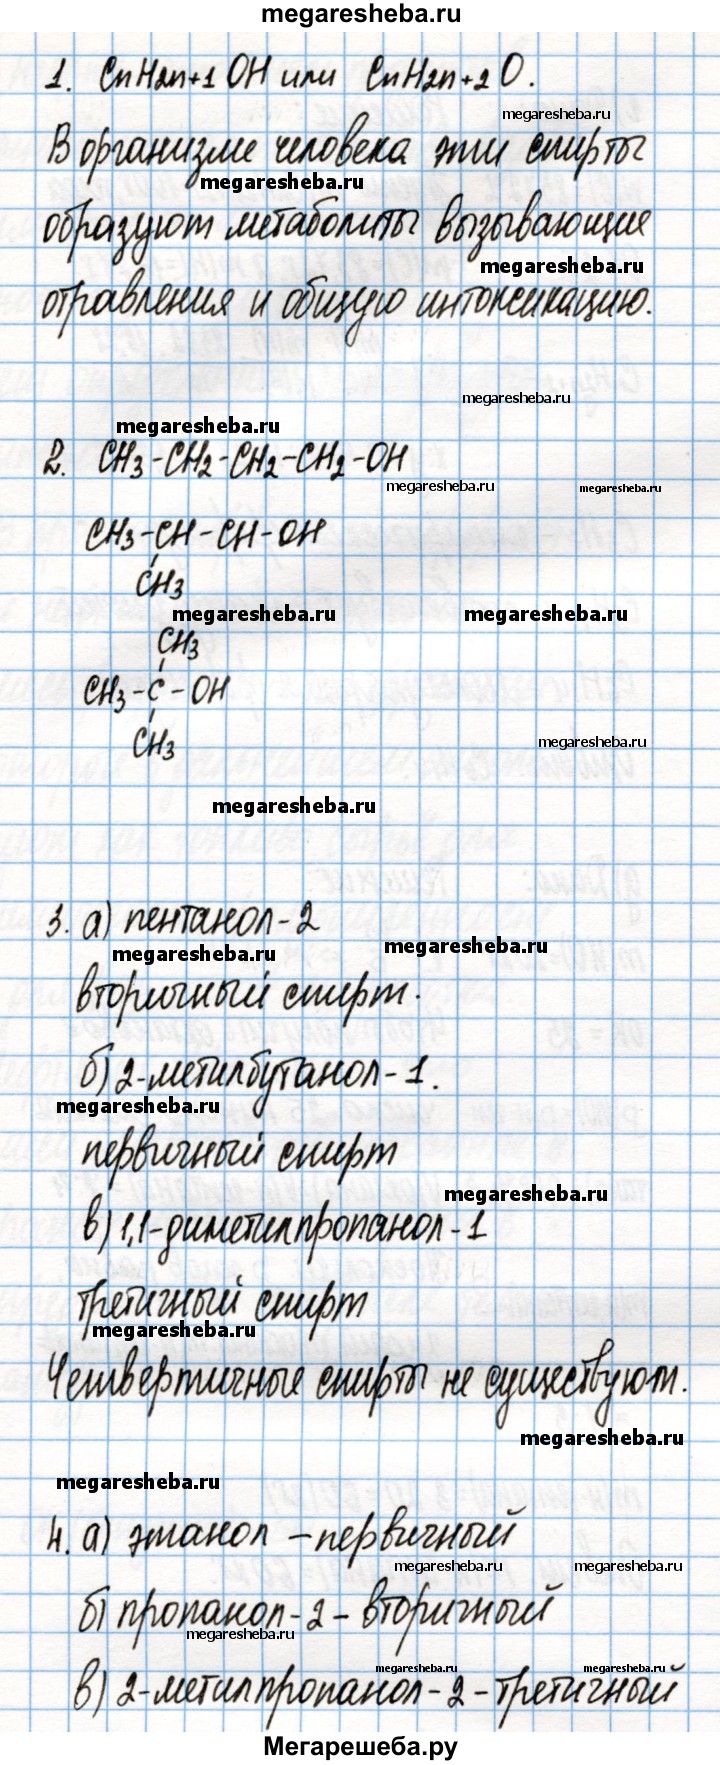 megaresheba.ru
1. CnH2n+1 OH или CnH2n+2 O.
megaresheba.ru
В организме человека эти спирты
megaresheba.ru
образуют метаболиты вызывающие
megaresheba.ru
отравления и общую интоксикацию.
megaresheba.ru
megaresheba.ru
2. CH3-CH2-CH2-CH2-OH
megaresheba.ru
megaresheba.ru
CH3-CH-CH-OH
CH3
megaresheba.ru megaresheba.ru
CH3
CH3-C-OH
CH3
megaresheba.ru
megaresheba.ru
3. а) пентанол-2
megaresheba.ru
megaresheba.ru
вторичный спирт.
б) 2-метилбутанол-1.
megaresheba.ru
первичный спирт
megaresheba.ru
в) 1,1-диметилпропанол-1
третичный спирт
megaresheba.ru
Четвертичные спирты не существуют.
megaresheba.ru
megaresheba.ru
4. а) этанол - первичный
megaresheba.ru megaresheba.ru
б) пропанол-2 - вторичный
megaresheba.ru
megaresheba.ru megaresheba.ru
в) 2-метилпропанол-2 - третичный
Мегарешеба.ру